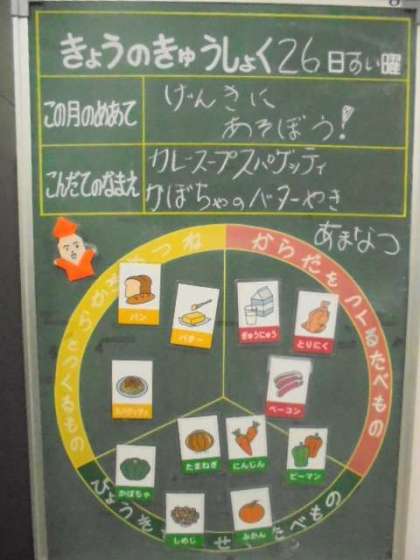 きょうのきゅうしょく 26日すい曜
この月のめあて
げんきに
あそぼう!
こんだてのなまえ
カレースープスパゲッティ
かぼちゃのバターやき
あまなつ
からだをつくるたべもの
パン
バター
ぎゅうにゅう
とりにく
スパゲッティ
ベーコン
たまねぎ
にんじん
ピーマン
かぼちゃ
しめじ
みかん